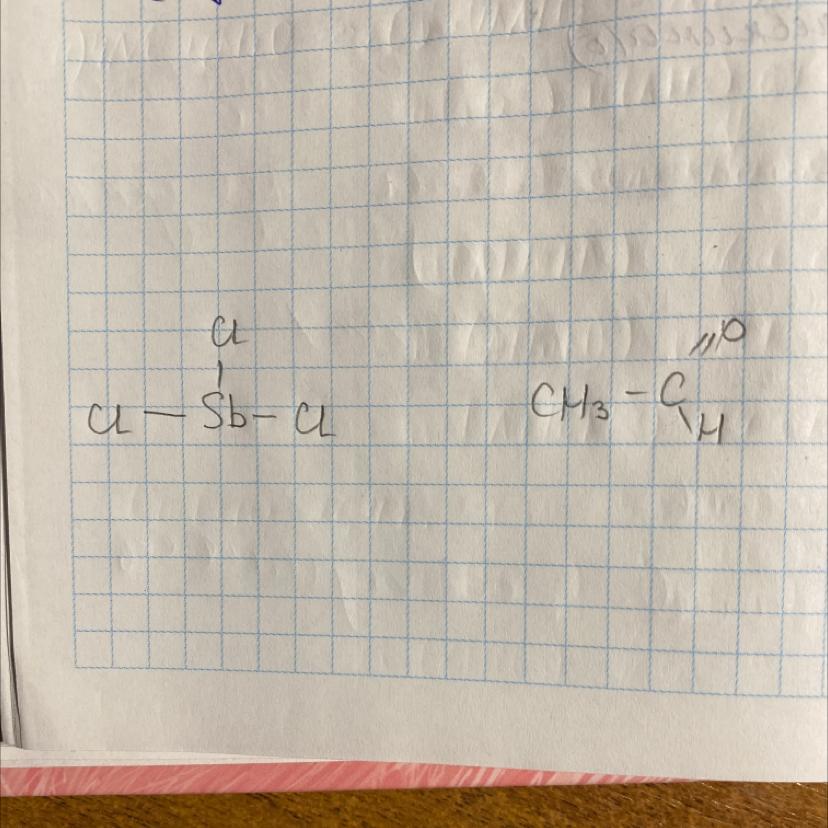 Cl
Cl — Sb — Cl
O
CH3 - C
H